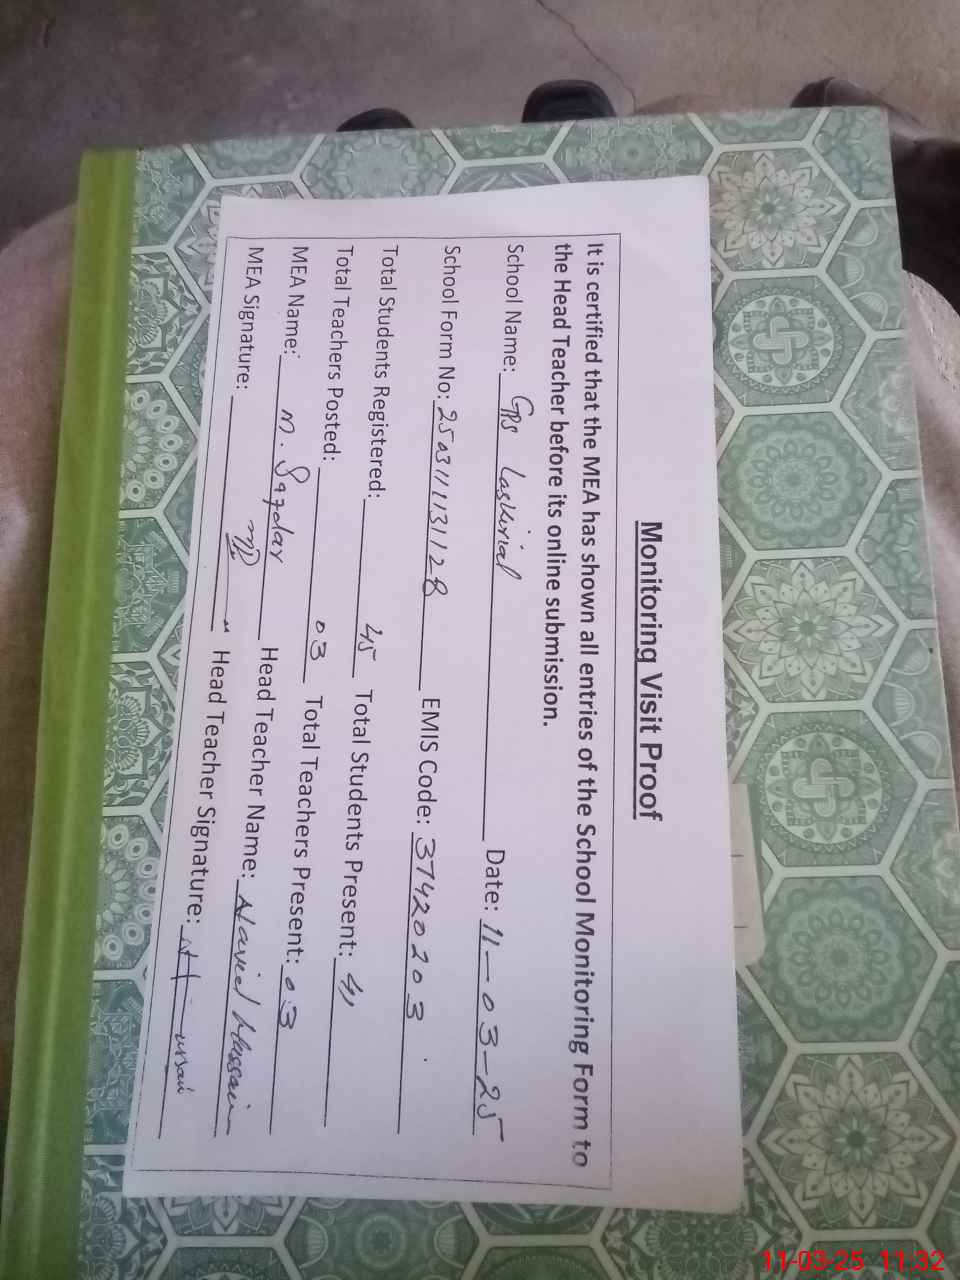 Monitoring Visit Proof
It is certified that the MEA has shown all entries of the School Monitoring Form to
the Head Teacher before its online submission.
School Name: GPS Date: 11-03-25
School Form No: 250311131128 EMIS Code: 37420203
Total Students Registered: 45 Total Students Present: 41
Total Teachers Posted: 03 Total Teachers Present: 03
MEA Name: M. Head Teacher Name: Naveed Hussain
MEA Signature: Head Teacher Signature:
11-03-25 11:32